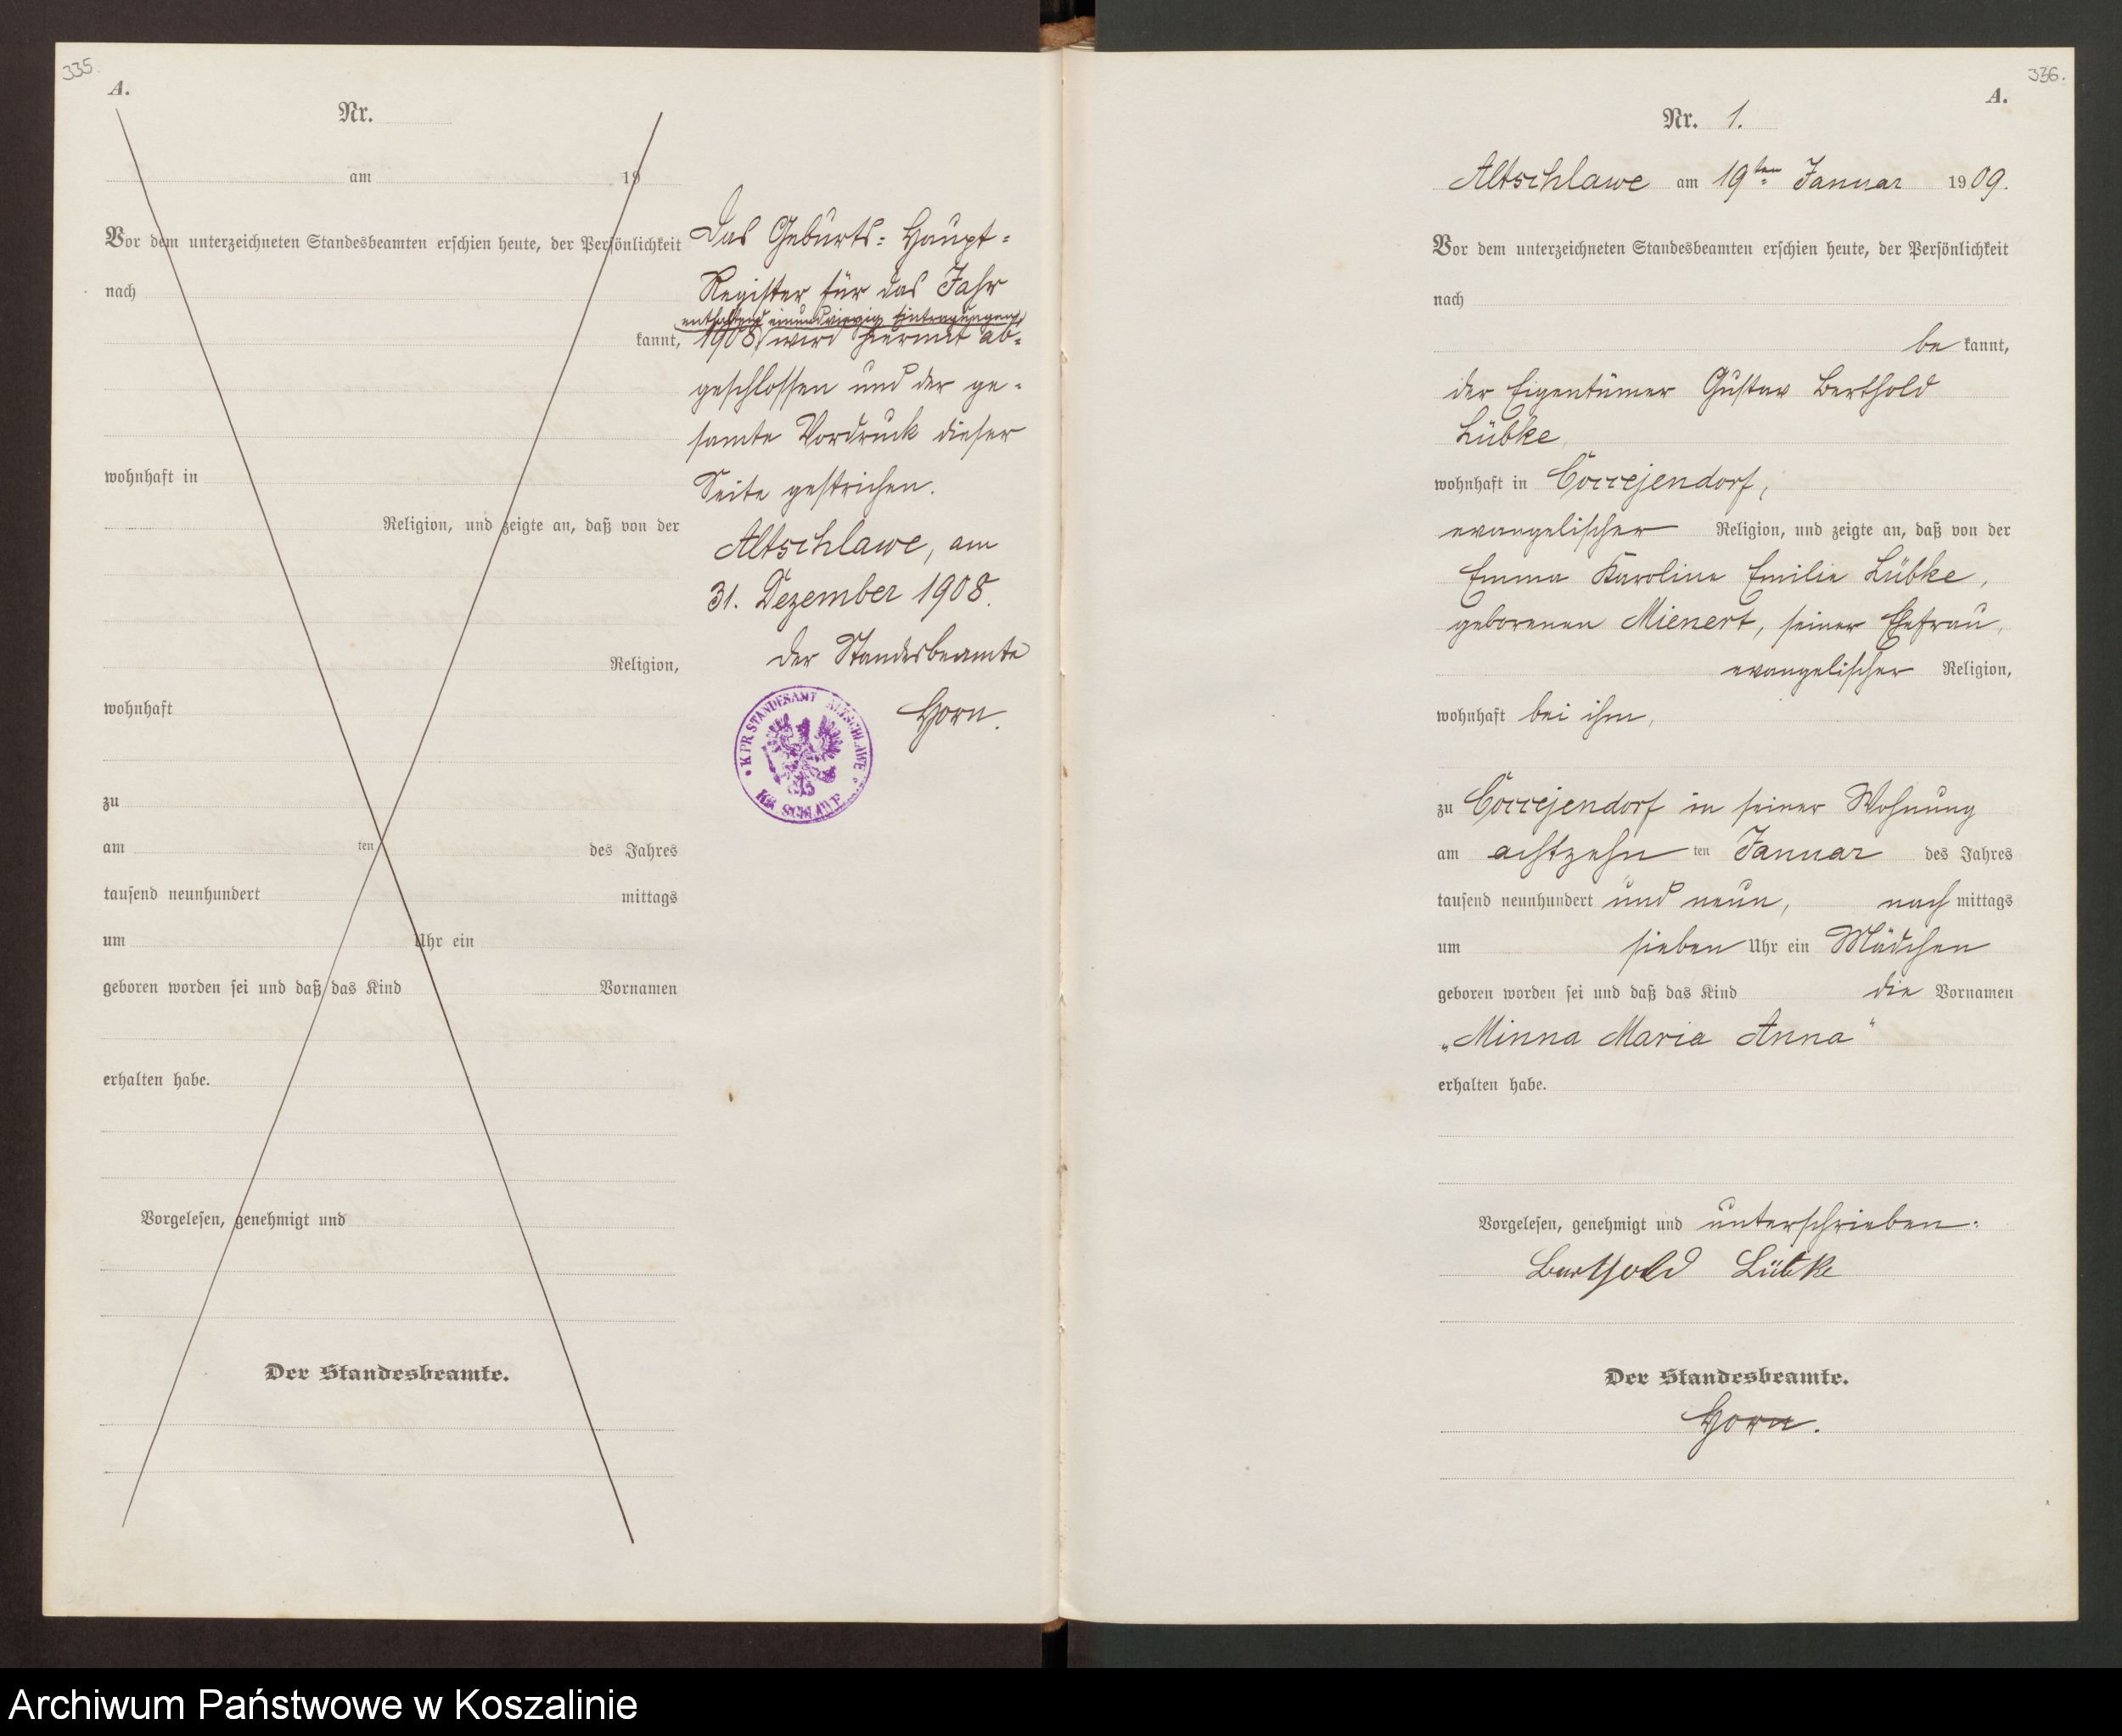 335.
A.
Nr.
am 19
Vor dem unterzeichneten Standesbeamten erschien heute, der Persönlichkeit
nach
kannt,
wohnhaft in
Religion, und zeigte an, daß von der
Religion,
wohnhaft
zu
am ten des Jahres
tausend neunhundert mittags
um Uhr ein
geboren worden sei und daß das Kind Vornamen
erhalten habe.
Vorgelesen, genehmigt und
Der Standesbeamte.
Das Geburts-Haupt-
Register für das Jahr
enthaltend einundvierzig Eintragungen,
1908, wird hiermit ab-
geschlossen und der ge-
samte Vordruck dieser
Seite gestrichen.
Altschlawe, am
31. Dezember 1908.
Der Standesbeamte
Horn.
K PR STANDESAMT ALTSCHLAWE
KR. SCHLAWE
336.
A.
Nr. 1.
Altschlawe am 19ten Januar 1909.
Vor dem unterzeichneten Standesbeamten erschien heute, der Persönlichkeit
nach
be kannt,
der Eigentümer Gustav Berthold
Lübke,
wohnhaft in Coccejendorf,
evangelischer Religion, und zeigte an, daß von der
Emma Karoline Emilie Lübke,
geborenen Mienert, seiner Ehefrau,
evangelischer Religion,
wohnhaft bei ihm,
zu Coccejendorf in seiner Wohnung
am achtzehn ten Januar des Jahres
tausend neunhundert und neun, nach mittags
um sieben Uhr ein Mädchen
geboren worden sei und daß das Kind die Vornamen
„Minna Maria Anna"
erhalten habe.
Vorgelesen, genehmigt und unterschrieben.
Berthold Lübke
Der Standesbeamte.
Horn.
Archiwum Państwowe w Koszalinie